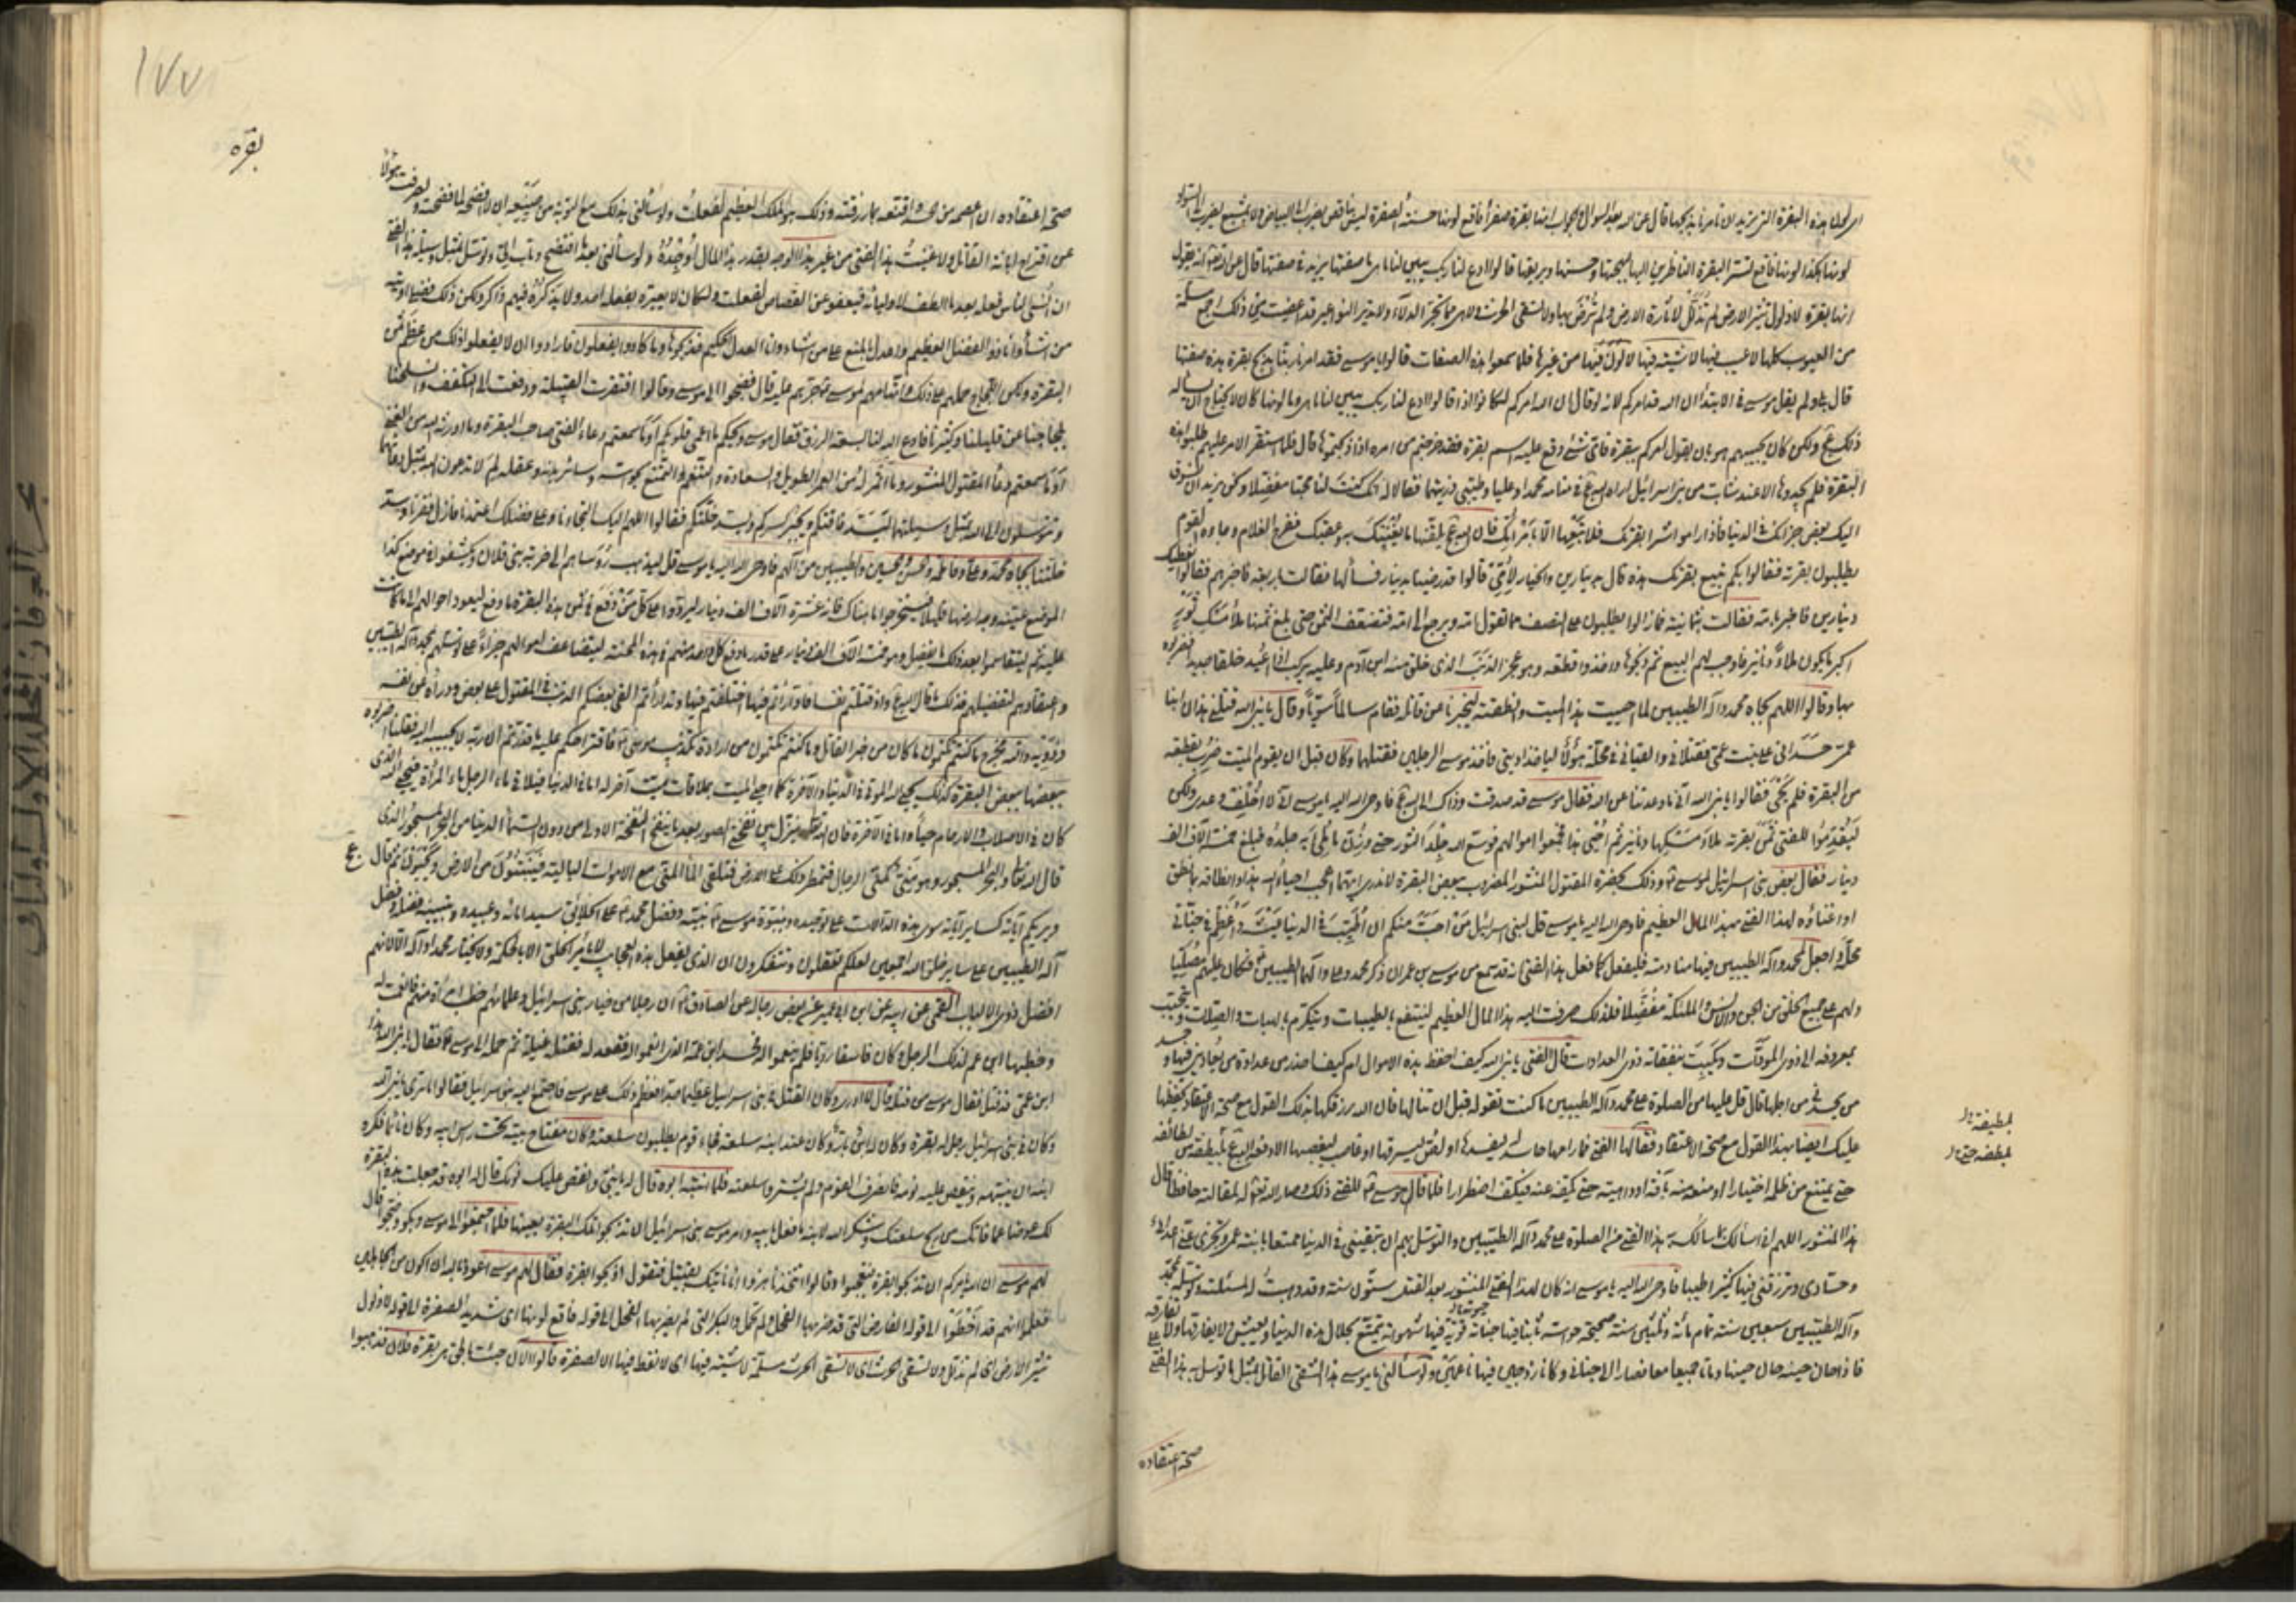 لونها هكذا لونها فاقع تسر البقرة الناظرين اليها لبهجتها وحسنها وبريقها قالوا ادع لنا ربك يبين لنا ما هي ما صفتها يزيد في صفتها قال عن الله تعالى انه يقول
انها بقرة لا ذلول تثير الارض لم تذلل لاثارة الارض ولم ترض بها ولا تسقي الحرث ولا هي مما تجر الدلاء ولا تدير النواعير قد اعفيت من ذلك اجمع مسلمة
من العيوب كلها لا عيب فيها لا شية فيها لا لون فيها من غيرها فلما سمعوا هذه الصفات قالوا يا موسى فقد امرنا ربنا بذبح بقرة هذه صفتها
قال بلى ولم يقل موسى في الابتداء ان الله قد امركم لانه لو قال ان الله امركم لكانوا اذا قالوا ادع لنا ربك يبين لنا ما هي وما لونها كان لا يحتاج ان يساله
ذلك عج ولكن كان يجيبهم هو بان يقول امركم ببقرة فاي شئ وقع عليه اسم بقرة فقد خرجتم من امره اذا ذبحتموها قال فلما استقر الامر عليهم طلبوا هذه
البقرة فلم يجدوها الا عند شاب من بني اسرائيل اراه الله عج في منامه محمدا وعليا وطيبي ذريتهما فقالا له انك كنت لنا محبا مفضلا ونحن نريد ان نسوق
اليك بعض جزائك في الدنيا فاذا راموا شراء بقرتك فلا تبعها الا بامر امك فان الله عج يلقنها ما يغنيك به وعقبك ففرح الغلام وجاءه القوم
يطلبون بقرته فقالوا بكم تبيع بقرتك هذه قال بدينارين والخيار لامي قالوا قد رضينا بدينار فسألها فقالت باربعة فاخبرهم فقالوا نعطيك
دينارين فاخبر امه فقالت بثمانية فما زالوا يطلبون على النصف مما تقول امه ويرجع الى امه فتضعف الثمن حتى بلغ ثمنها ملأ مسك ثور
اكبر ما يكون ملاؤه دنانير فاوجب لهم البيع ثم ذبحوها واخذوا قطعة وهو عجز الذنب الذي خلق منه ابن آدم وعليه يركب اذا اعيد خلقا جديدا فضربوه
بها وقالوا اللهم بجاه محمد وآله الطيبين لما احييت هذا الميت وانطقته ليخبرنا عن قاتله فقام سالما سويا وقال يا نبي الله قتلني هذان ابنا
عمي حسداني على بنت عمي فقتلاني والقياني في محلة هؤلاء لياخذوا ديتي فاخذ موسى الرجلين فقتلهما وكان قبل ان يقوم الميت ضرب بقطعة
من البقرة فلم يحي فقالوا يا نبي الله اين ما وعدتنا عن الله فقال موسى قد صدقت وذاك الى الله عج فاوحى الله اليه يا موسى اني لا اخلف وعدي ولكن
ليقدموا للفتى ثمن بقرته ملاء مسكها دنانير ثم احيي هذا فجمعوا اموالهم فوسع الله جلد الثور حتى وزن ما ملئ به جلده فبلغ خمسة آلاف الف
دينار فقال بعض بني اسرائيل لموسى ع وذلك بحضرة المقتول المنشور المضروب ببعض البقرة لا ندري ايهما اعجب احياء الله هذا وانطاقه بما نطق
او اغناؤه لهذا الفتى بهذا المال العظيم فاوحى الله اليه يا موسى قل لبني اسرائيل من احب منكم ان اطيب في الدنيا عيشه واعظم في جناني
محله واجعل لمحمد وآله الطيبين فيها منادمته فليفعل كما فعل هذا الفتى انه قد سمع من موسى بن عمران ذكر محمد وعلي وآلهما الطيبين فكان عليهم مصليا
ولهم على جميع الخلق من الجن والانس والملئكة مفضلا فلذلك صرفت اليه هذا المال العظيم ليتنفع بالطيبات ويتكرم بالهبات والصلات ويتحبب
بمعروفه الى ذوي المودات ويكبت بنفقاته ذوي العداوات قال الفتى يا نبي الله كيف احفظ هذه الاموال ام كيف احذر من عداوة من يعاديني فيها وحسد
من يحسدني من اجلها قال قل عليها من الصلوة على محمد وآله الطيبين ما كنت تقوله قبل ان تنالها فان الذي رزقكها بذلك القول مع صحة الاعتقاد يحفظها
عليك ايضا بهذا القول مع صحة الاعتقاد فقالها الفتى فما رامها حاسد له ليفسدها او لص ليسرقها او غاصب ليغصبها الا دفعه الله عج بلطيفة من لطائفه
حتى يمتنع من ظلمه اختيارا او منعه منه بآفة او داهية حتى يكفه عنه فيكف اضطرارا فلما قال موسى ع للفتى ذلك وصار الله عز وجل له لمقالته حافظا قال
هذا المنشور اللهم اني اسألك بما سألك به هذا الفتى من الصلوة على محمد وآله الطيبين والتوسل بهم ان تبقيني في الدنيا متمتعا بابنة عمي وتخزي عني اعدائي
وحسادي وترزقني فيها كثيرا طيبا فاوحى الله اليه يا موسى انه كان لهذا الفتى المنشور بعد القتل ستون سنة وقد وهبت له لمسئلته وتوسله بمحمد
وآله الطيبين سبعين سنة تمام مائة وثلثين سنة صحيحة حواسه ثابتا فيها جنانه قوية فيها شهواته يتمتع بحلال هذه الدنيا ويعيش ولا يفارقها ولا تفارقه
فاذا حان حينه حان حينها وماتا جميعا معا فصارا الى جناني وكانا زوجين فيها ناعمين ولو سألني يا موسى هذا الشقي القاتل بمثل ما توسل به هذا الفتى
صحة اعتقاده
١٧٧
بقره
صحة اعتقاده ان اعصمه من الحسد واقنعه بما رزقته وذلك هو الملك العظيم لفعلت ولو سألني بذلك مع التوبة من صنيعه ان لا افضحه لما فضحته ولصرفت هؤلاء
عن اقتراح ابانة القاتل ولاغنيت هذا الفتى من غير هذا الوجه بقدر هذا المال اوجده ولو سألني بعد ما افتضح وتاب الي وتوسل بمثل وسيلة هذا الفتى
ان انسي الناس فعله بعد ما الطف لاوليائه فيعفون عن القصاص لفعلت ولكان لا يعيره بفعله احد ولا يذكره فيهم ذاكر ولكن ذلك فضلي اوتيه
من اشاء وانا ذو الفضل العظيم واعدل بالمنع على من اشاء وانا العدل الحكيم فذبحوها وما كادوا يفعلون فارادوا ان لا يفعلوا ذلك من عظم ثمن
البقرة ولكن اللجاج حملهم على ذلك واتهامهم لموسى حداهم عليه قال فضجوا الى موسى وقالوا افتقرت القبيلة ودفعت الى التكفف وانسلخنا
بلجاجنا عن قليلنا وكثيرنا فادع الله لنا بسعة الرزق فقال موسى ويحكم ما اعمى قلوبكم اوما سمعتم دعاء الفتى صاحب البقرة وما اورثه الله من الغنى
اوما سمعتم دعاء المقتول المنشور وما اثمر له من العمر الطويل والسعادة والتنعم والتمتع بحواسه وسائر بدنه وعقله لم لا تدعون الله بمثل دعائهما
وتتوسلون الى الله بمثل وسيلتهما ليسد فاقتكم ويجبر كسركم ويسد خلتكم فقالوا اللهم اليك التجأنا وعلى فضلك اعتمدنا فازل فقرنا وسد
خلتنا بجاه محمد وعلي وفاطمة والحسن والحسين والطيبين من آلهم فاوحى الله اليه يا موسى قل لهم ليذهب رؤساؤهم الى خربة بني فلان ويكشفوا في موضع كذا
الموضع عينه وجه ارضها قليلا ويستخرجوا ما هناك فانه عشرة آلاف الف دينار ليردوا على كل من دفع في ثمن هذه البقرة ما دفع ليعود احوالهم الى ما كانت
عليه ثم ليتقاسموا بعد ذلك ما يفضل وهو خمسة آلاف الف دينار على قدر ما دفع كل واحد منهم في هذه المحنة ليتضاعف اموالهم جزاء على توسلهم بمحمد وآله الطيبين
واعتقادهم لتفضيلهم فذلك ما قال الله عج واذ قتلتم نفسا فادارأتم فيها اختلفتم فيها وتدارأتم القى بعضكم الذنب في المقتول على بعض ودرأه عن نفسه
وذويه والله مخرج ما كنتم تكتمون ما كان من خبر القاتل وما كنتم تكتمون من ارادة تكذيب موسى باقتراحكم عليه ما قدرتم ان ربه لا يجيبه اليه فقلنا اضربوه
ببعضها ببعض البقرة كذلك يحيي الله الموتى في الدنيا والآخرة كما احيى الميت بملاقاة ميت آخر له اما في الدنيا فيلاقي ماء الرجل ماء المرأة فيحيي الله الذي
كان في الاصلاب والارحام حيا واما في الآخرة فان الله تعالى ينزل بين نفختي الصور بعد ما ينفخ النفخة الاولى من دون السماء الدنيا من البحر المسجور الذي
قال الله تعالى والبحر المسجور وهو مني كمني الرجال فتمطر ذلك على الارض فتلقى الماء المني مع الاموات البالية فينبتون من الارض ويحيون ثم قال عج
ويريكم آياته كساير آياته سوى هذه الدلالات على توحيده ونبوة موسى ع نبيه وفضل محمد على الخلائق سيد امائه وعبيده وتبيينه فضله وفضل
آله الطيبين على ساير خلق الله اجمعين لعلكم تعقلون وتتفكرون ان الذي يفعل هذه العجائب لا يأمر الخلق الا بالحكمة ولا يختار محمدا وآله الا لانهم
افضل ذوي الالباب القمي عن ابيه عن ابن ابي عمير عن بعض رجاله عن الصادق ع ان رجلا من خيار بني اسرائيل وعلمائهم خطب امرأة منهم فانعمت له
وخطبها ابن عم لذلك الرجل وكان فاسقا رديا فلم ينعموا له فحسد ابن عمه الذي انعموا له فقعد له فقتله غيلة ثم حمله الى موسى ع فقال يا نبي الله هذا
ابن عمي قد قتل فقال موسى من قتله قال لا ادري وكان القتل في بني اسرائيل عظيما جدا فعظم ذلك على موسى فاجتمع اليه بنو اسرائيل فقالوا ما ترى يا نبي الله
وكان في بني اسرائيل رجل له بقرة وكان له ابن بار وكان عند ابنه سلعة فجاء قوم يطلبون سلعته وكان مفتاح بيته تحت رأس ابيه وكان نائما فكره
ابنه ان ينبهه وينغص عليه نومه فانصرف القوم ولم يشتروا سلعته فلما انتبه ابوه قال له يا بني ولم تنغص عليك نومك قال له ابوه قد جعلت هذه البقرة
لك عوضا عما فاتك من ربح سلعتك وشكر الله لابنه ما فعل بابيه وامر موسى بني اسرائيل ان تذبحوا تلك البقرة بعينها فلما اجتمعوا الى موسى وبكوا وضجوا قال
لهم موسى ان الله يامركم ان تذبحوا بقرة فتعجبوا وقالوا اتتخذنا هزوا نأتيك بقتيل فتقول اذبحوا بقرة فقال لهم موسى اعوذ بالله ان اكون من الجاهلين
فعلموا انهم قد اخطؤا الى قوله الفارض التي قد ضربها الفحل ولم تحمل والبكر التي لم يضربها الفحل الى قوله فاقع لونها اي شديد الصفرة الى قوله لا ذلول
تثير الارض اي لم تذلل ولا تسقي الحرث اي لا تسقي الحرث مسلمة لا شية فيها اي لا نقط فيها الا الصفرة قالوا الآن جئت بالحق هي بقرة فلان فذهبوا